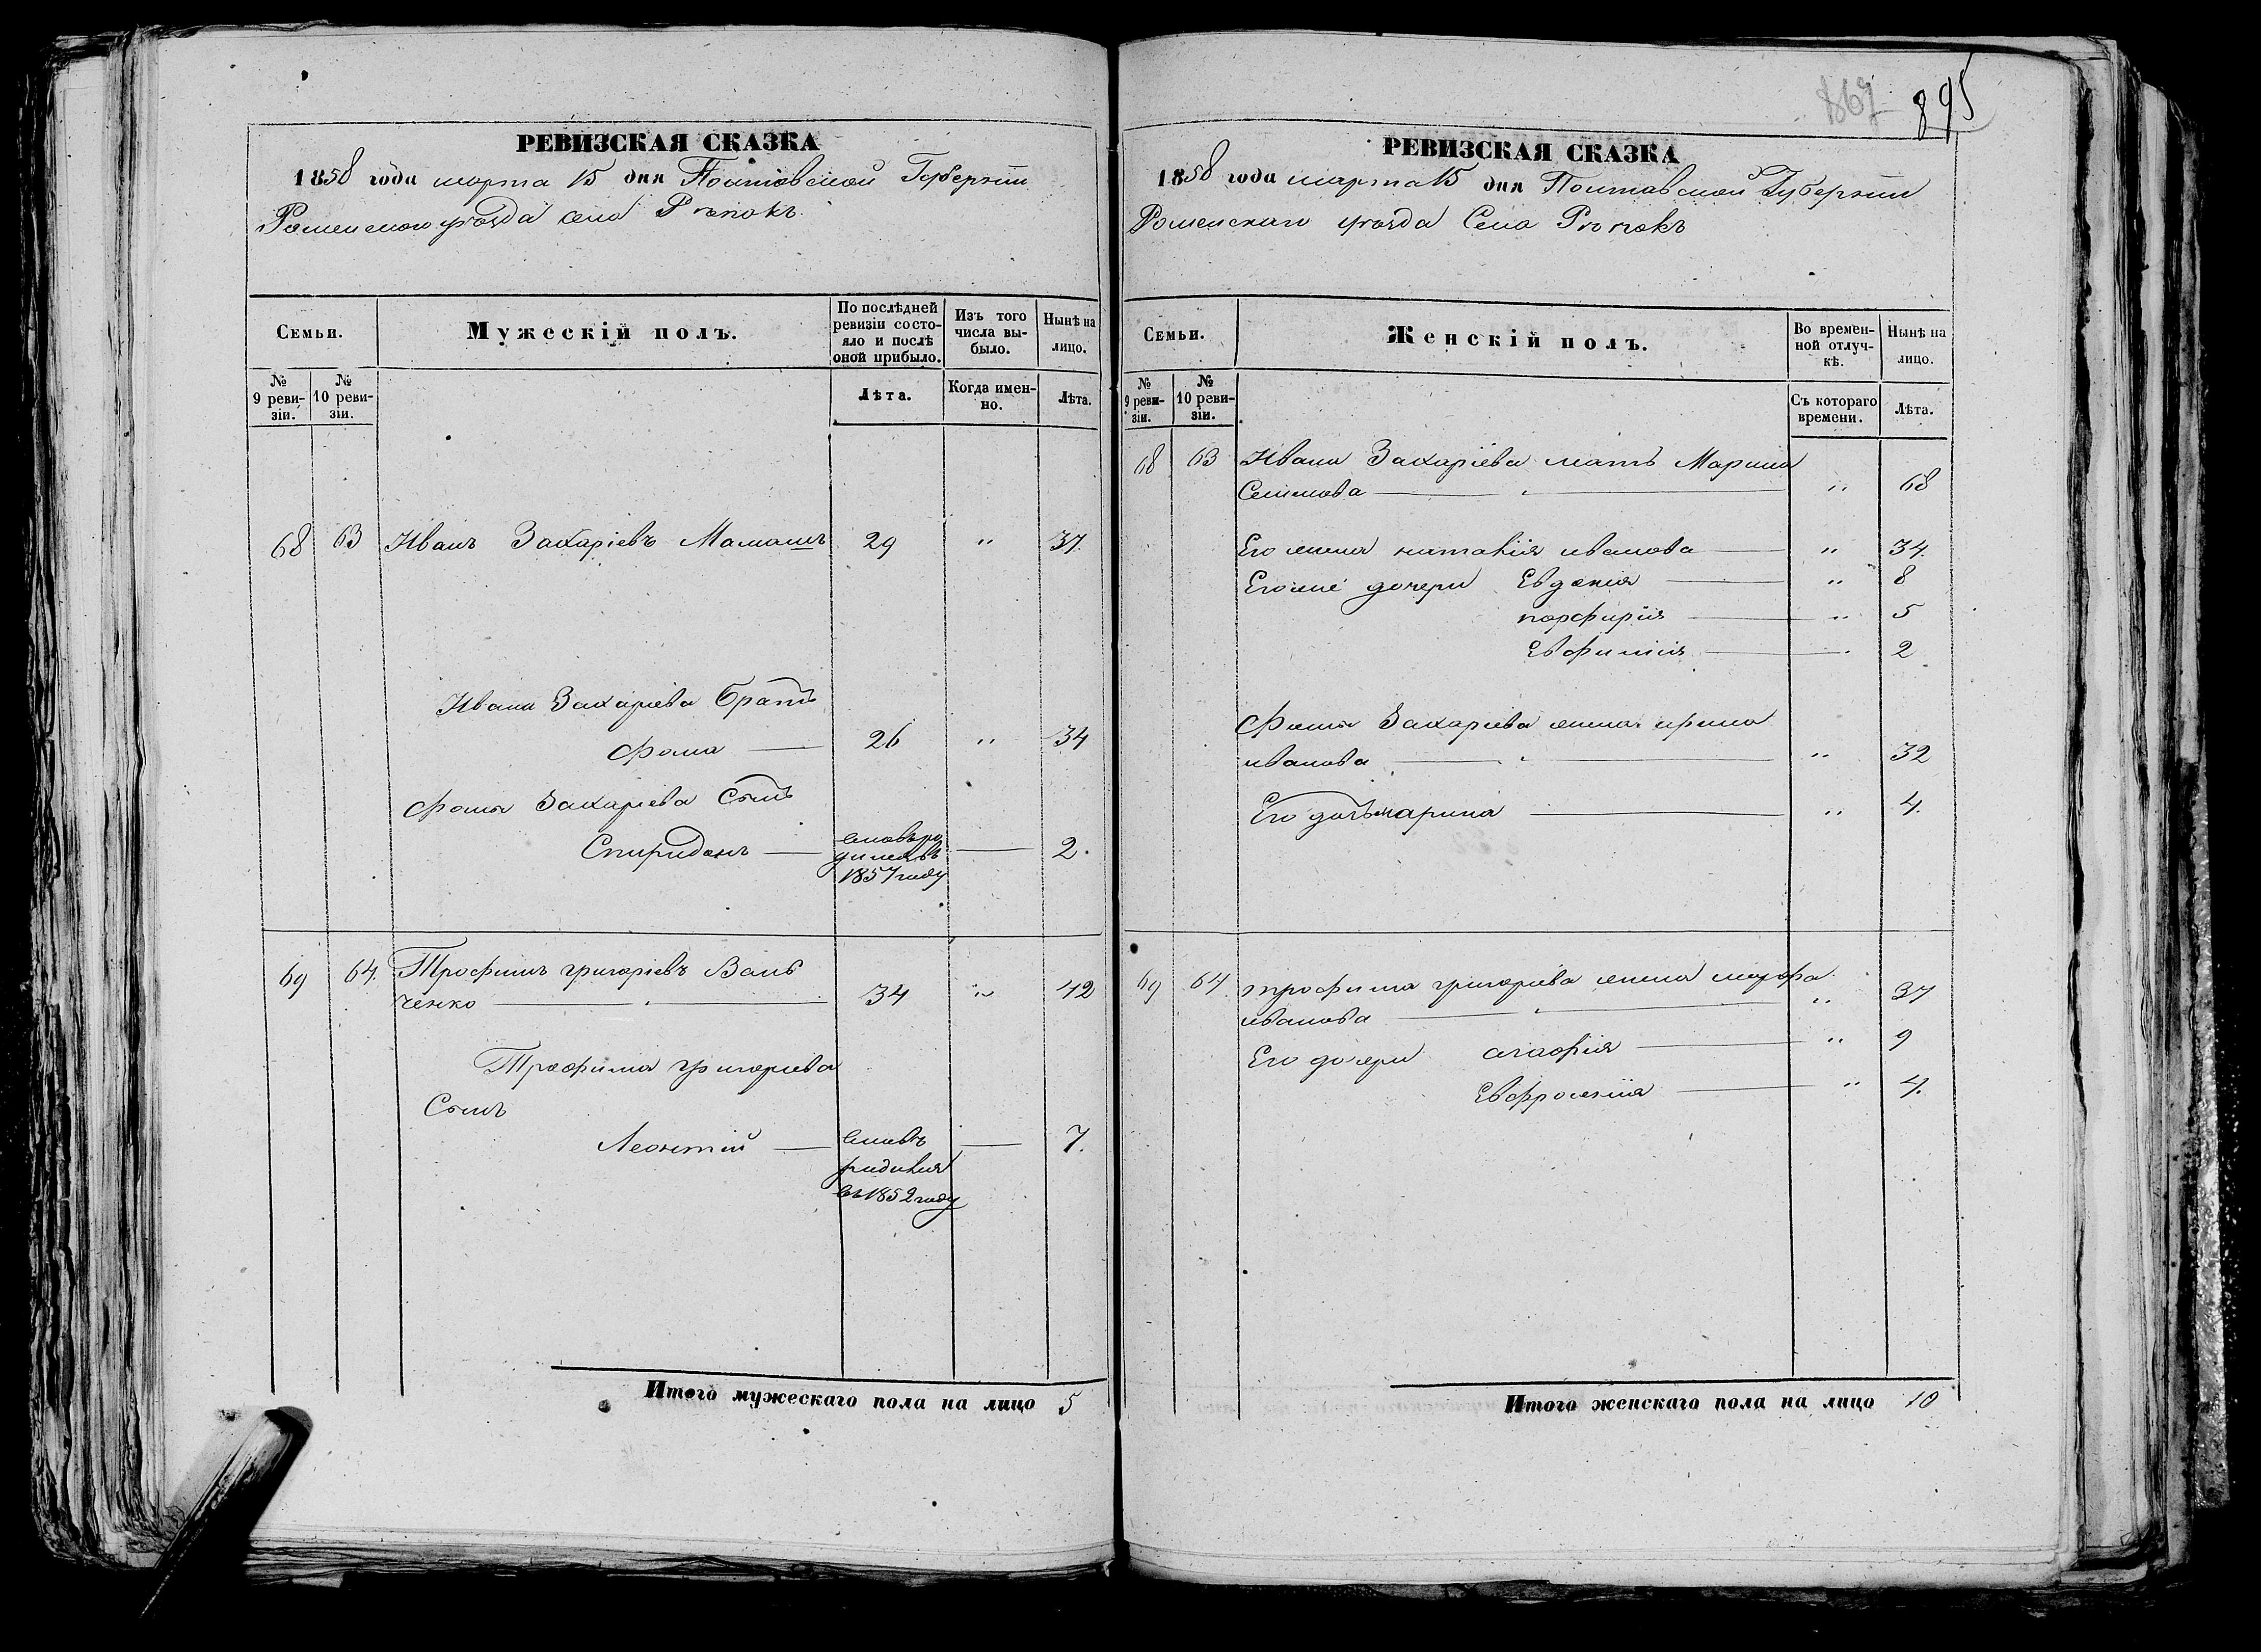 РЕВИЗСКАЯ СКАЗКА
1858 года марта 15 дня Полтавской Губерніи
Роменского уѣзда села Рѣчокъ
Семьи.
Мужескій полъ.
По послѣдней ревизіи состо-
яло и послѣ
оной прибыло.
Изъ того
числа вы-
было.
Нынѣ на
лицо.
№
9 реви-
зіи.
№
10 реви-
зіи.
Лѣта.
Когда имен-
но.
Лѣта.
68 63 Иванъ Захаріевъ Маманъ 29 " 37.
Ивана Захаріева братъ
Фома — 26 " 34
Фомы Захаріева Сынъ
Спиридонъ — 2.
1857 году
69 64. Трофимъ григоріевъ Вань
ченко — 34 " 42
Трофима григоріева
Сынъ
Леонтій — вновь — 7.
родился
въ 1852 году
Итого мужескаго пола на лицо 5
867 895
РЕВИЗСКАЯ СКАЗКА
1858 года марта 15 дня Полтавской Губерніи
Роменскаго уѣзда Села Рѣчокъ
Семьи.
Женскій полъ.
Во времен-
ной отлуч-
кѣ.
Нынѣ на
лицо.
№
9 реви-
зіи.
№
10 реви-
зіи.
Съ котораго
времени.
Лѣта.
68 63 Ивана Захаріева мать Марина
Семенова — " 68
Его жена наталія иванова — " 34.
Его же дочери Евдокия — " 8
порфирія — " 5
Евфимія — " 2
Фомы Захаріева жена ирина
иванова — " 32
Его дочь марина — " 4.
69 64. трофима григоріева жена марфа
иванова — " 37
Его дочери агафія — " 9
Евфросинія — " 4.
Итого женскаго пола на лицо 10